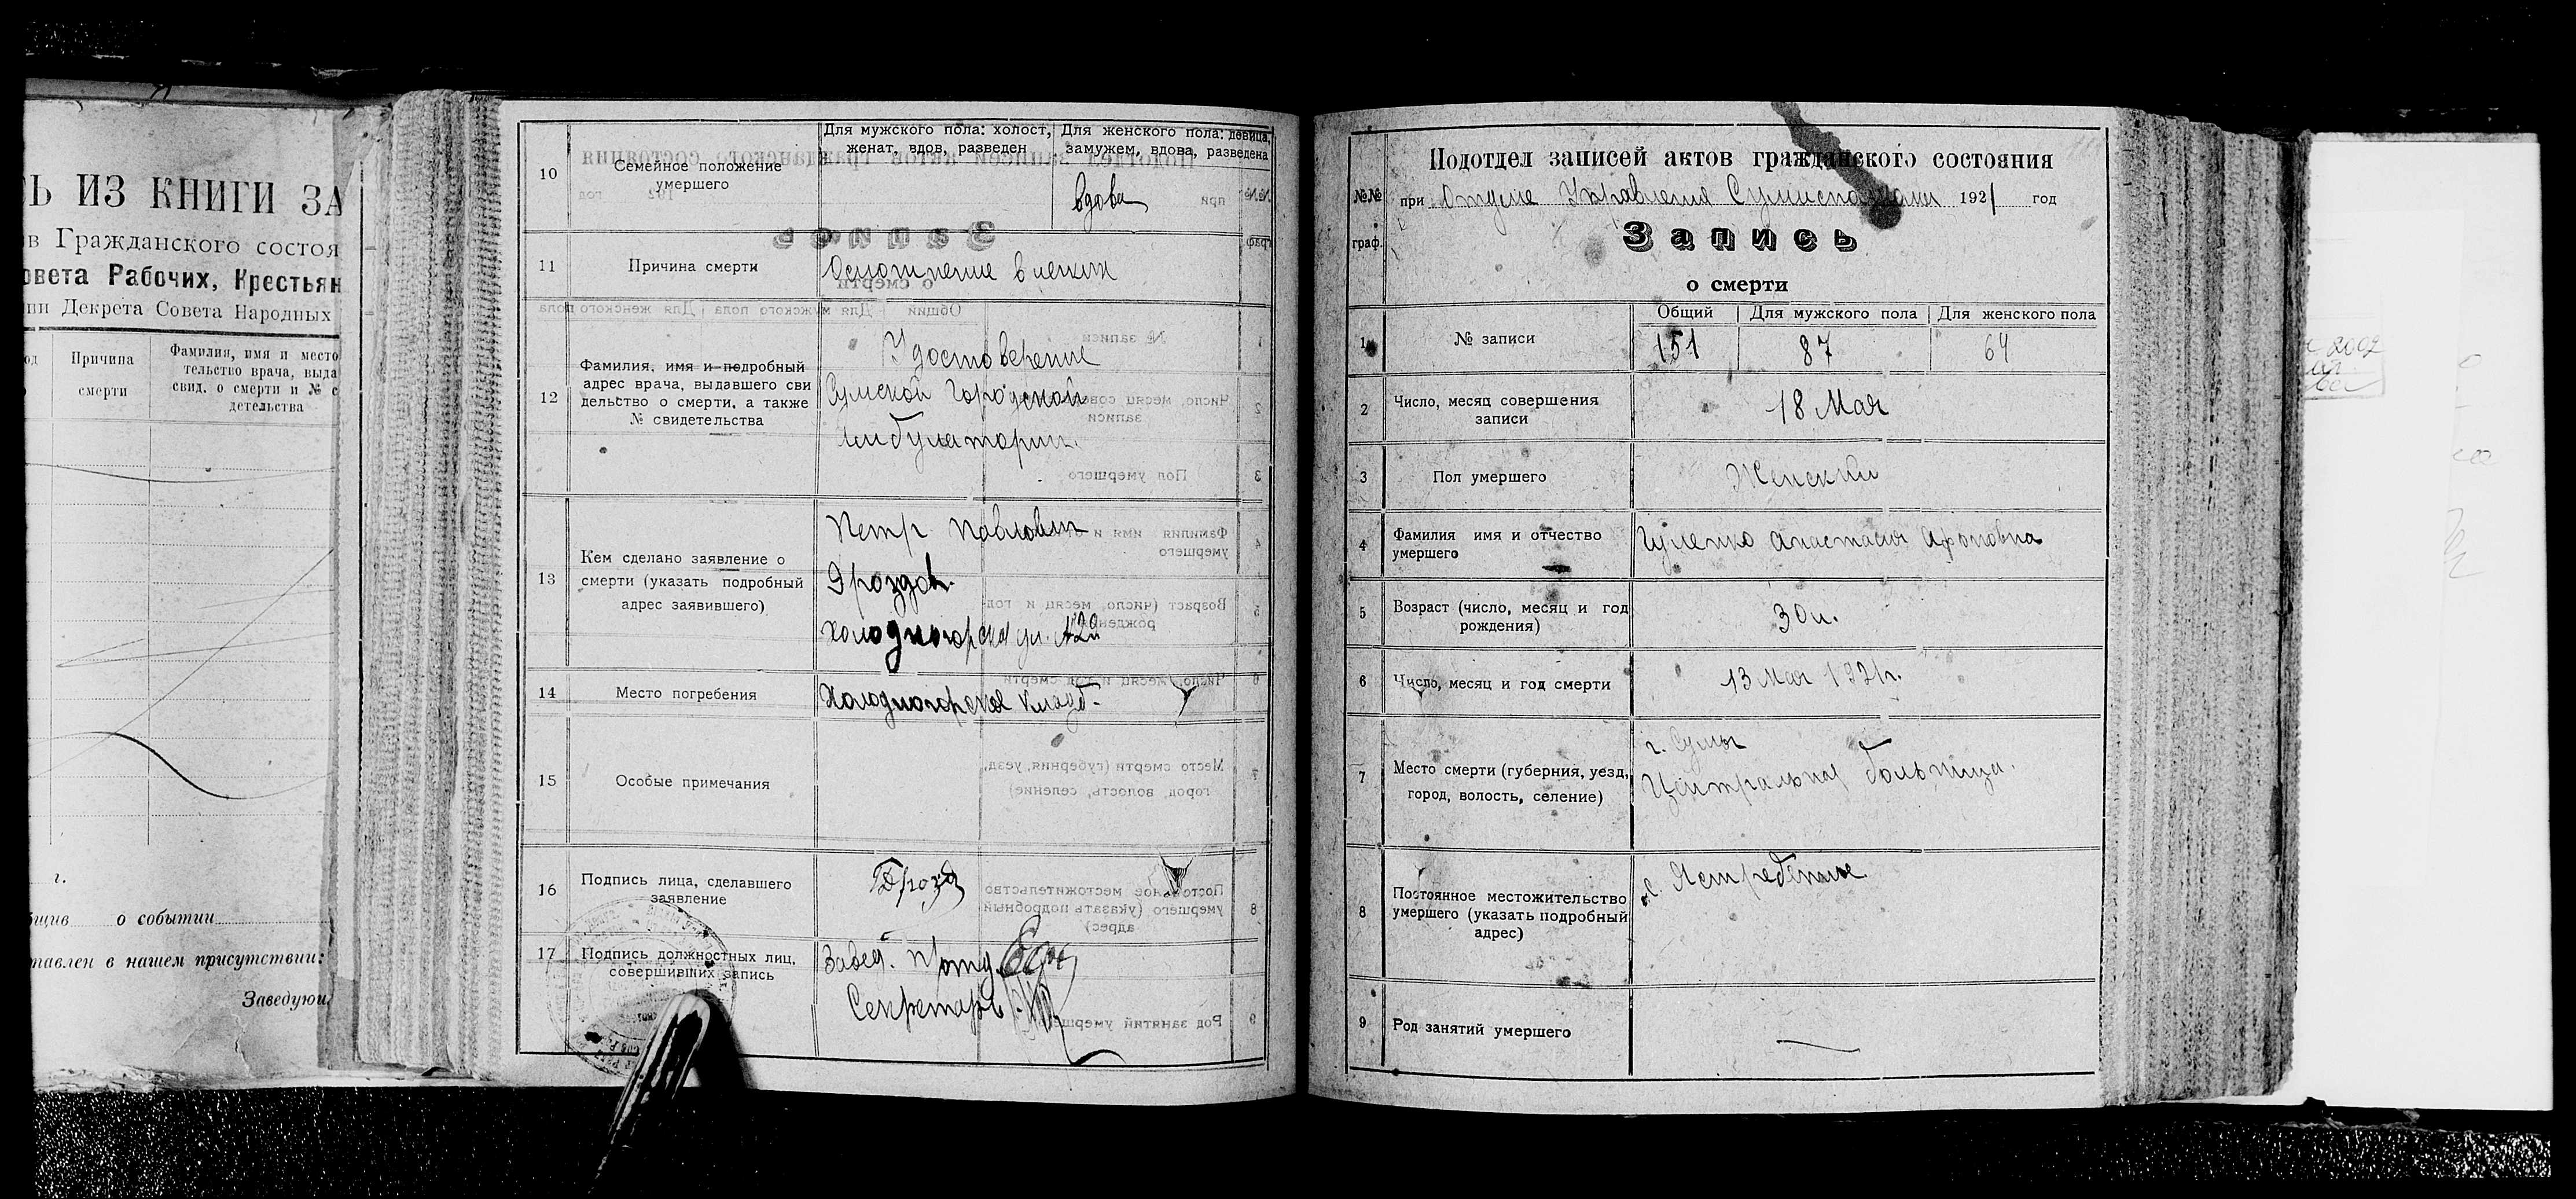 ИЗ КНИГИ ЗА
в Гражданского состоя
овета Рабочих, Крестьян
ии Декрета Совета Народных
од
Причина
смерти
Фамилия, имя и место
тельство врача, выда
свид. о смерти и № с
детельства
г.
бщив о событии
тавлен в нашем присутствии:
Заведую
10
Семейное положение
умершего
Для мужского пола: холост,
женат, вдов, разведен
Для женского пола: девица,
замужем, вдова, разведена
вдова
11
Причина смерти
Осложнение в легких
12
Фамилия, имя и подробный
адрес врача, выдавшего сви
детьство о смерти, а также
№ свидетельства
Удостоверение
Сумской Городской
Амбулатории.
13
Кем сделано заявление о
смерти (указать подробный
адрес заявившего)
Петр Павлович
Дроздов
Холодногорская ул. №20
14
Место погребения
Холодногорское кладб.
15
Особые примечания
16
Подпись лица, сделавшего
заявление
17
Подпись должностных лиц,
совершивших запись
Завед. П/отд.
Секретарь
№№
граф.
Подотдел записей актов гражданского состояния
при Отделе Управления 1921 год
Запись
о смерти
1
№ записи
Общий
Для мужского пола
Для женского пола
151
87
64
2
Число, месяц совершения
записи
18 Мая
3
Пол умершего
Женский
4
Фамилия имя и отчество
умершего
Гуленко Анастасия Афоновна
5
Возраст (число, месяц и год
рождения)
30 л.
6
Число, месяц и год смерти
13 Мая 1921 г.
7
Место смерти (губерния, уезд,
город, волость, селение)
г. Сумы
Центральная больница.
8
Постоянное местожительство
умершего (указать подробный
адрес)
с. Ястребенное
9
Род занятий умершего
2002